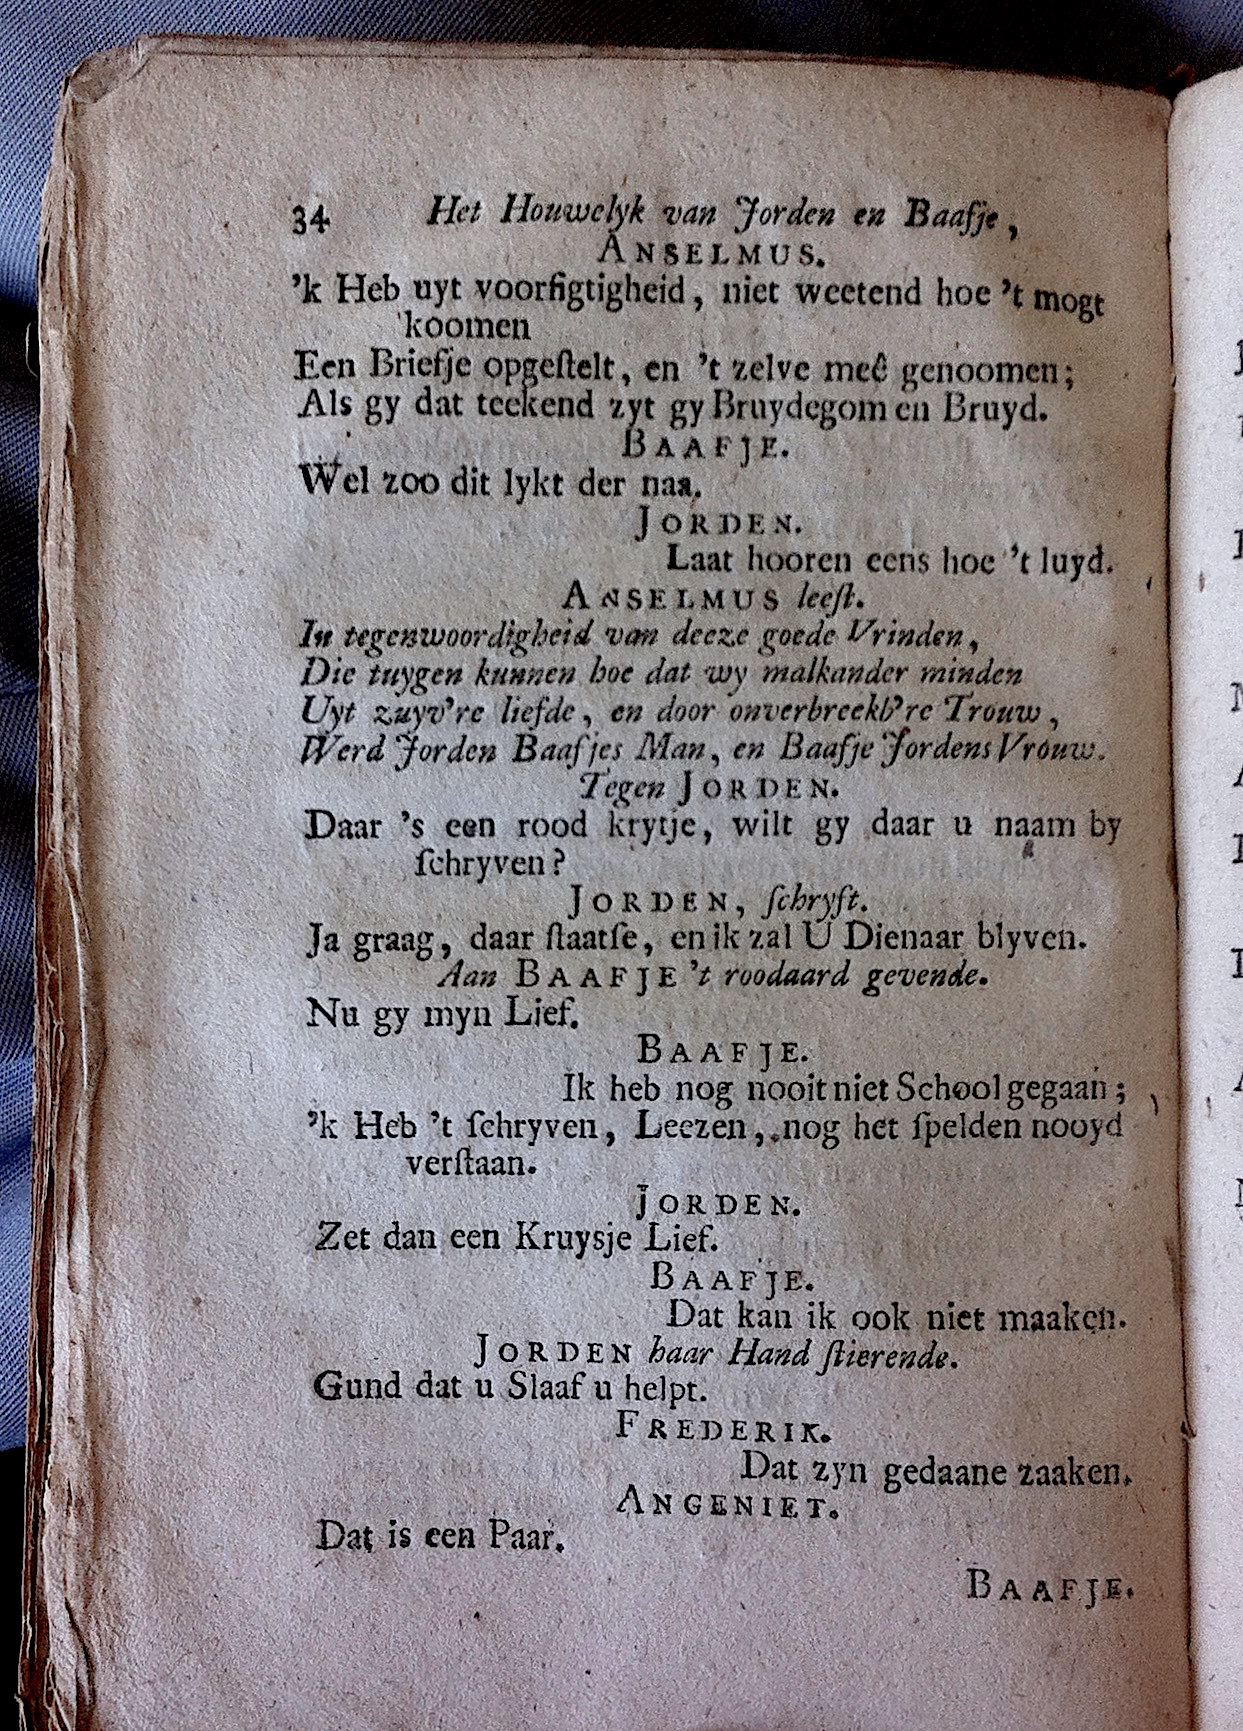 34 Het Houwelyk van Jorden en Baafje,
ANSELMUS.
'k Heb uyt voorſigtigheid, niet weetend hoe 't mogt
koomen
Een Briefje opgeſtelt, en 't zelve meê genoomen;
Als gy dat teekend zyt gy Bruydegom en Bruyd.
BAAFJE.
Wel zoo dit lykt der naa.
JORDEN.
Laat hooren eens hoe 't luyd.
ANSELMUS leeſt.
In tegenwoordigheid van deeze goede Vrinden,
Die tuygen kunnen hoe dat wy malkander minden
Uyt zuyv're liefde, en door onverbreekb're Trouw,
Werd Jorden Baafjes Man, en Baafje Jordens Vrouw.
Tegen JORDEN.
Daar 's een rood krytje, wilt gy daar u naam by
ſchryven?
JORDEN, ſchryft.
Ja graag, daar ſtaatſe, en ik zal U Dienaar blyven.
Aan BAAFJE 't roodaard gevende.
Nu gy myn Lief.
BAAFJE.
Ik heb nog nooit niet School gegaan;
'k Heb 't ſchryven, Leezen, nog het ſpelden nooyd
verſtaan.
JORDEN.
Zet dan een Kruysje Lief.
BAAFJE.
Dat kan ik ook niet maaken.
JORDEN haar Hand ſtierende.
Gund dat u Slaaf u helpt.
FREDERIK.
Dat zyn gedaane zaaken.
ANGENIET.
Dat is een Paar.
BAAFJE.